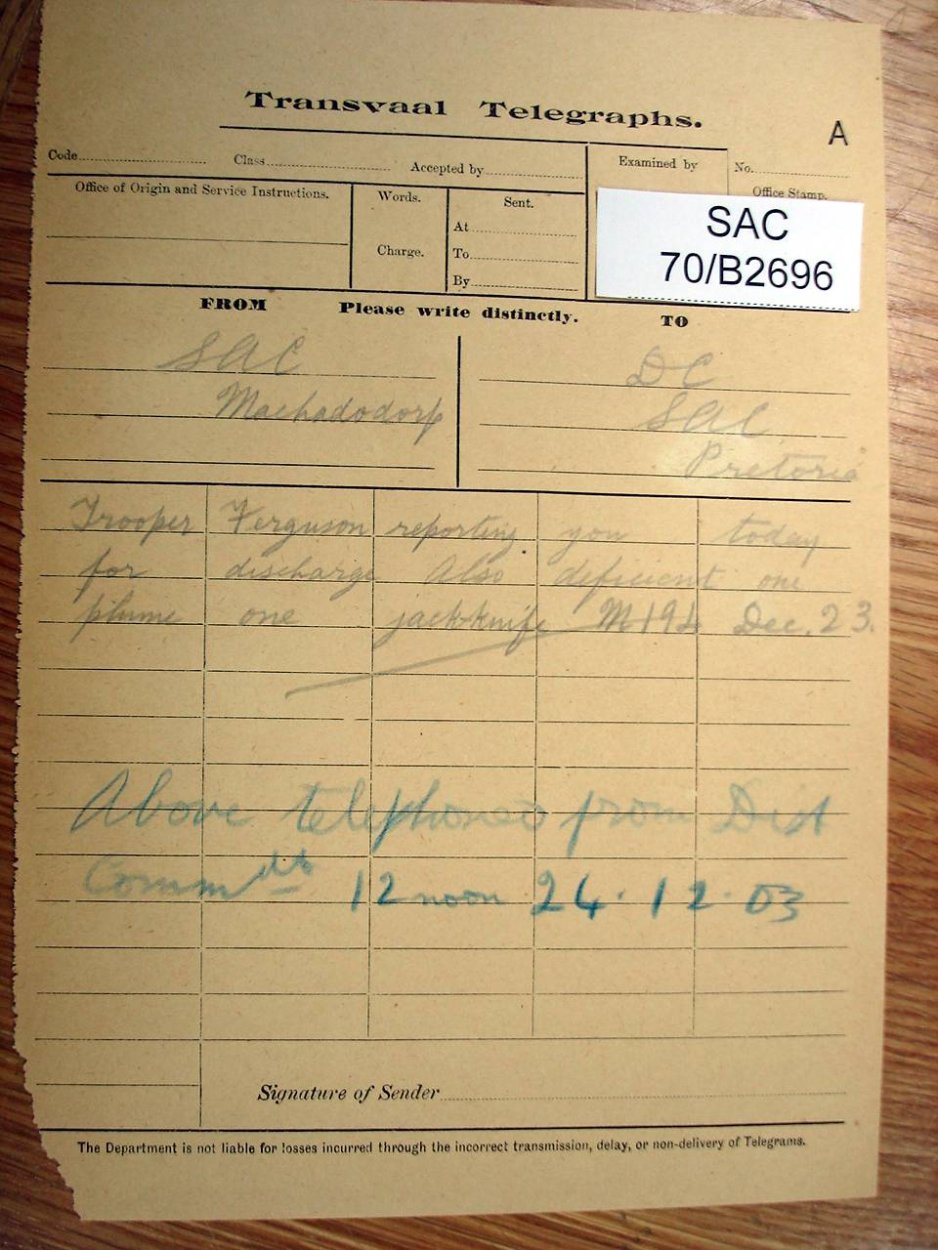 Transvaal Telegraphs.
A
Code Class Accepted by Examined by No.
Office of Origin and Service Instructions. Words. Sent. Office Stamp.
At
Charge. To
By
SAC
70/B2696
FROM Please write distinctly. TO
SAC DC
Machadodorp SAC
Pretoria
Trooper Ferguson reporting you today
for discharge Also deficient one
plume one jack-knife M192 Dec. 23.
Above telephoned from Dist
Commdts 12 noon 24.12.03
Signature of Sender
The Department is not liable for losses incurred through the incorrect transmission, delay, or non-delivery of Telegrams.